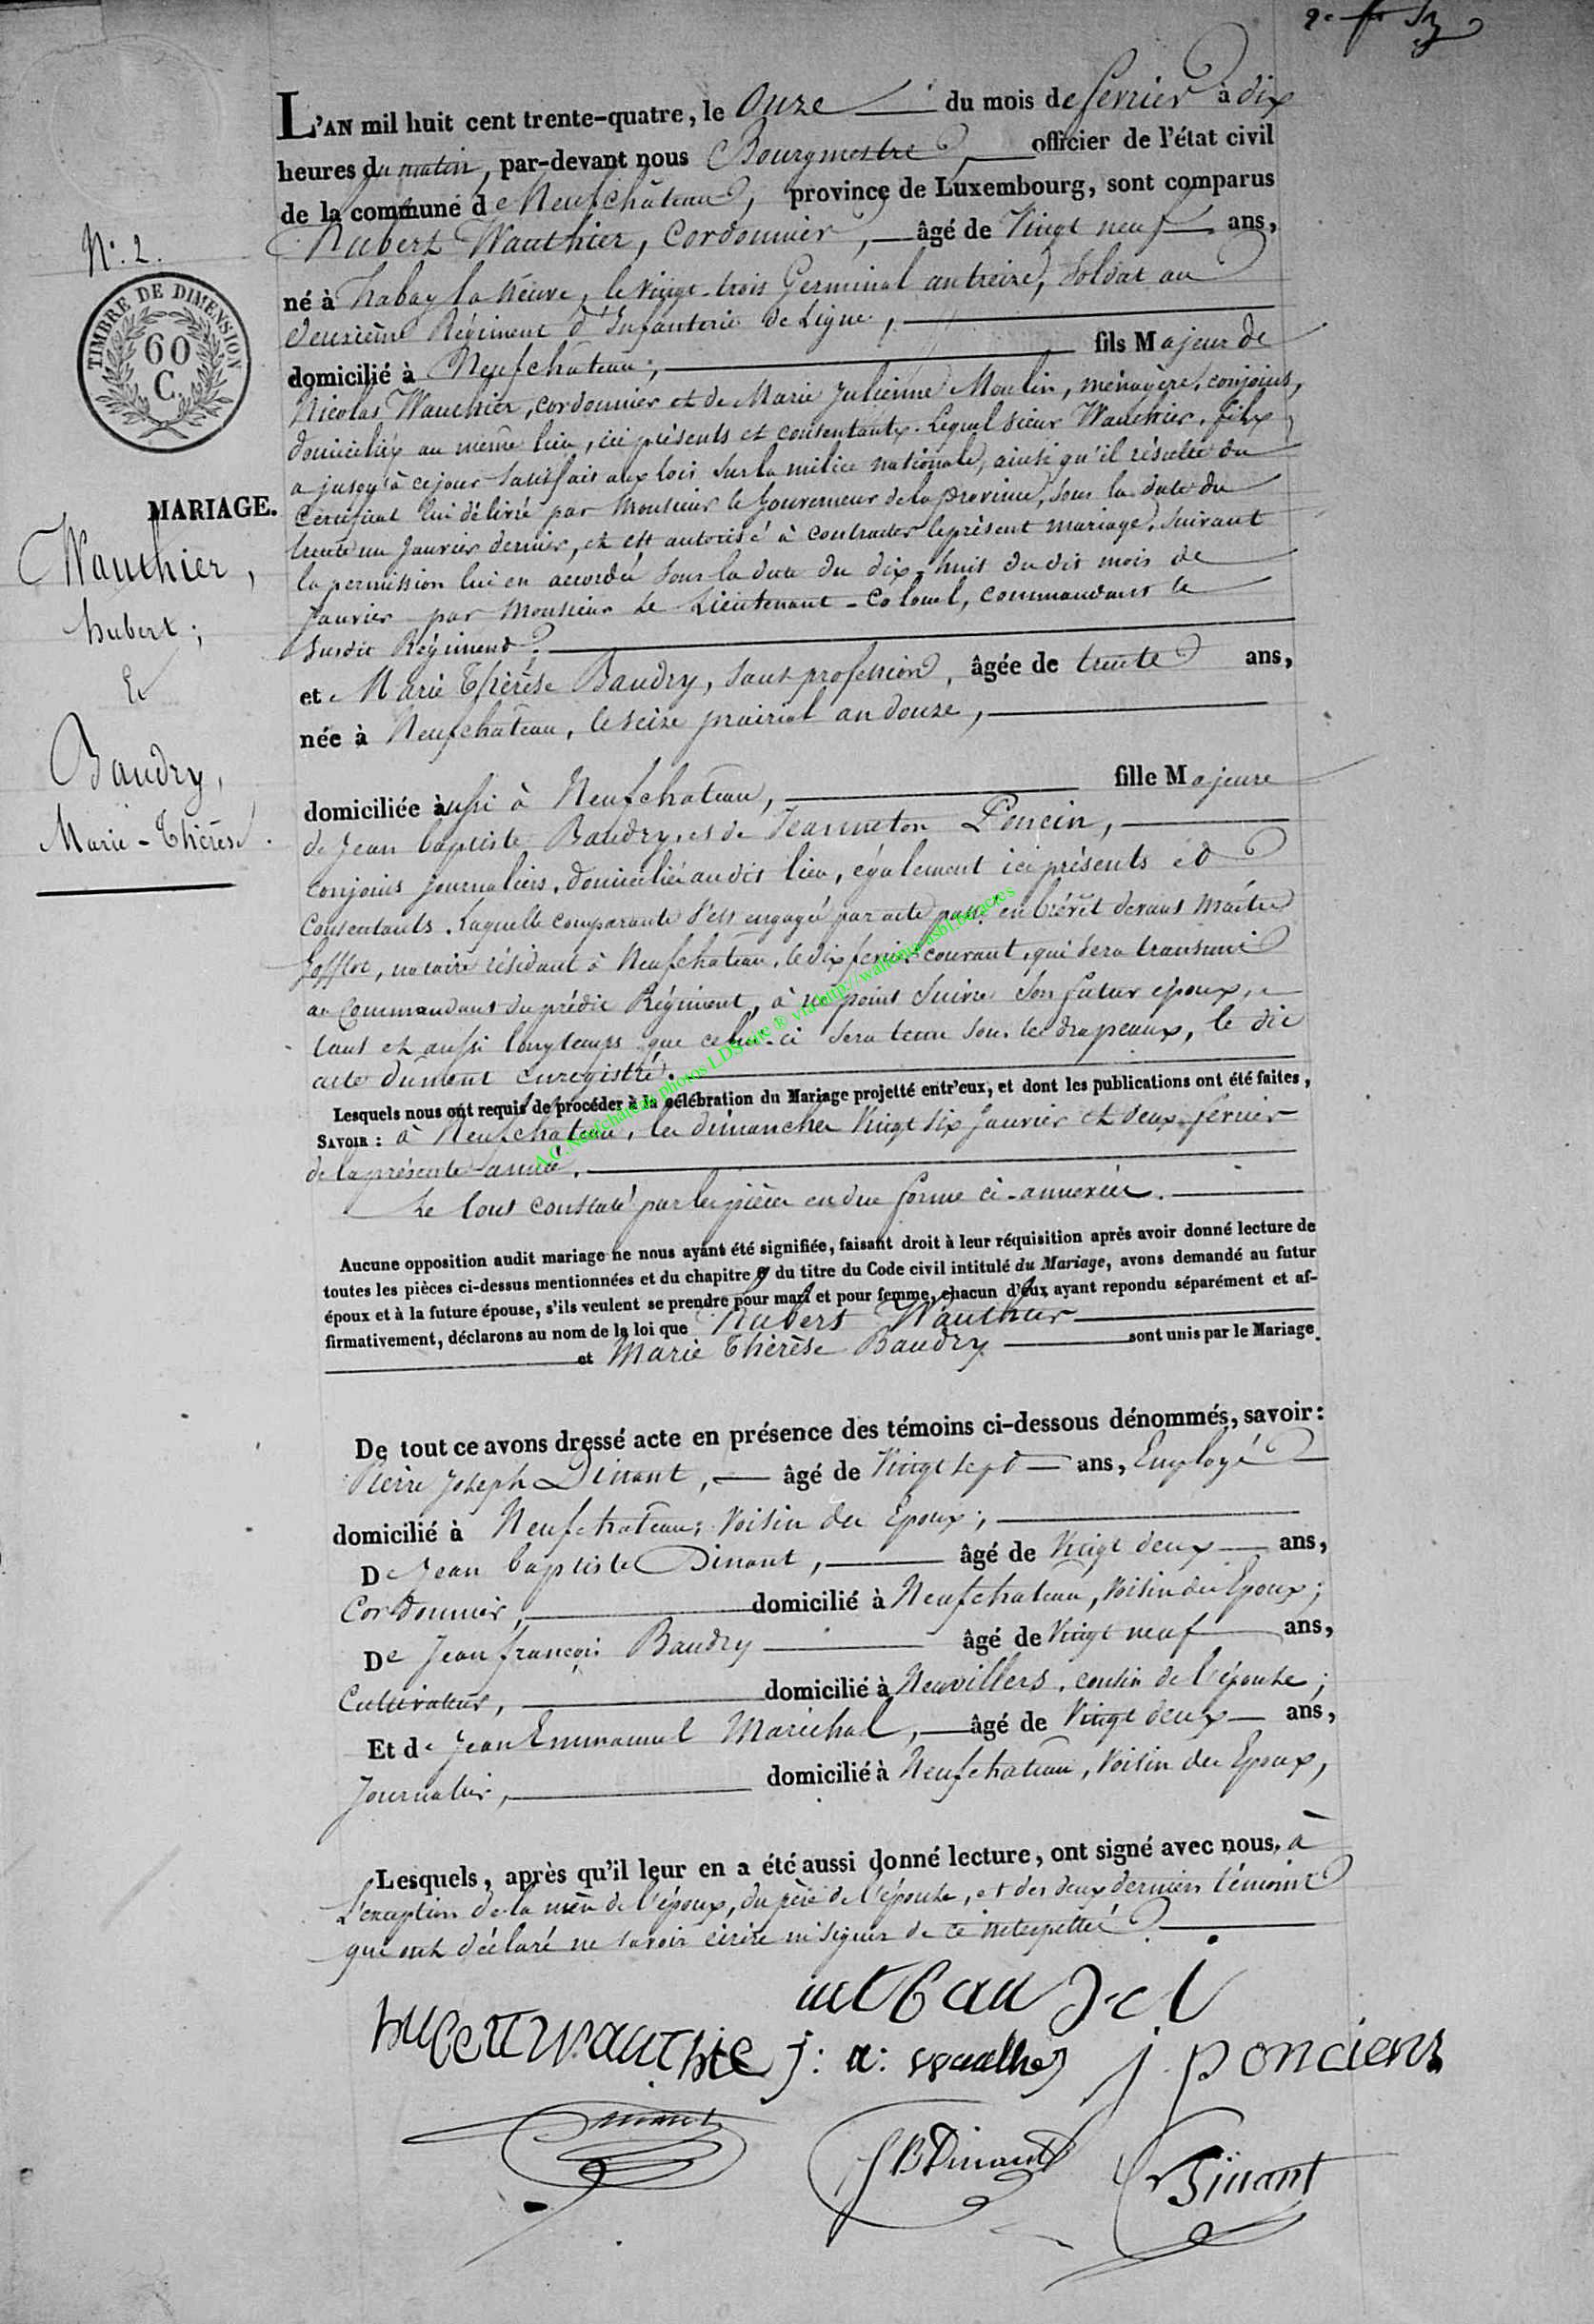 2e fo
L'AN mil huit cent trente-quatre, le Onze du mois de fevrier à dix
heures du matin, par-devant nous Bourgmestre, officier de l'état civil
de la commune de Neufchâteau, province de Luxembourg, sont comparus
Hubert Wauthier, Cordonnier, âgé de Vingt neuf ans,
né à habay la Neuve, le vingt-trois Germinal an treize, Soldat au
deuxième Régiment d'Infanterie de Ligne,
domicilié à Neufchâteau, fils Majeur de
Nicolas Wauthier, cordonnier et de Marie Julienne Moulin, ménagère, conjoints,
domiciliés au même lieu, ici présents et consentants. Lequel sieur Wauthier, fils,
a jusqu'à ce jour satisfait aux lois sur la milice nationale, ainsi qu'il résulte du
Certificat lui délivré par Monsieur le Gouverneur de la province, sous la date du
trente un Janvier dernier, et est autorisé à contracter le présent mariage, suivant
la permission lui en accordée sous la date du dix-huit du dit mois de
Janvier par Monsieur le Lieutenant-Colonel, commandant le
susdit Régiment.
et Marie Thérèse Baudry, sans profession, âgée de trente ans,
née à Neufchâteau, le seize prairial an douze,
domiciliée aussi à Neufchateau, fille Majeure
de Jean baptiste Baudry, et de Jeanneton Poncin,
conjoints journaliers, domiciliés au dit lieu, également ici présents et
Consentants. Laquelle comparante s'est engagée par acte passé en brévet devant Maître
Joffroi, notaire résidant à Neufchateau, le dix fevrier courant, qui sera transmis
au Commandant du prédit Régiment, à ne point suivre son futur époux,
tant et aussi longtemps que celui-ci sera tenu sous les drapeaux, le dit
acte dument enregistré.
Lesquels nous ont requis de procéder à la célébration du Mariage projetté entr'eux, et dont les publications ont été faites,
SAVOIR : à Neufchateau, les dimanches Vingt six Janvier et deux fevrier
de la présente année.
Le tout constaté par les pièces en due forme ci-annexées.
Aucune opposition audit mariage ne nous ayant été signifiée, faisant droit à leur réquisition après avoir donné lecture de
toutes les pièces ci-dessus mentionnées et du chapitre 6 du titre du Code civil intitulé du Mariage, avons demandé au futur
époux et à la future épouse, s'ils veulent se prendre pour mari et pour femme, chacun d'eux ayant repondu séparément et af-
firmativement, déclarons au nom de la loi que Hubert Wauthier
et Marie Thérèse Baudry sont unis par le Mariage.
De tout ce avons dressé acte en présence des témoins ci-dessous dénommés, savoir :
Pierre Joseph Dinant, âgé de Vingt sept ans, Employé
domicilié à Neufchateau, Voisin des Epoux;
De Jean baptiste Dinant, âgé de Vingt deux ans,
Cordonnier, domicilié à Neufchateau, Voisin des Epoux;
De Jean françois Baudry âgé de Vingt neuf ans,
Cultivateur, domicilié à Neuvillers, cousin de l'épouse;
Et de Jean Emmanuel Maréchal, âgé de Vingt deux ans,
Journalier, domicilié à Neufchateau, Voisin des Epoux,
Lesquels, après qu'il leur en a été aussi donné lecture, ont signé avec nous, à
L'exception de la mère de l'époux, du père de l'épouse, et des deux derniers témoins
qui ont déclaré ne savoir écrire ni signer de ce interpellés.
mt baudri
hubert wauthie j: n: wauthier j. ponciens
Dinant JBDinant Dinant
N: 2.
TIMBRE DE DIMENSION
60
C.
MARIAGE.
Wauthier,
hubert;
Et
Baudry,
Marie-Thérèse.
A.C. Neufchâteau photos LDS site ® via http://wallonia-asbl.be/actes